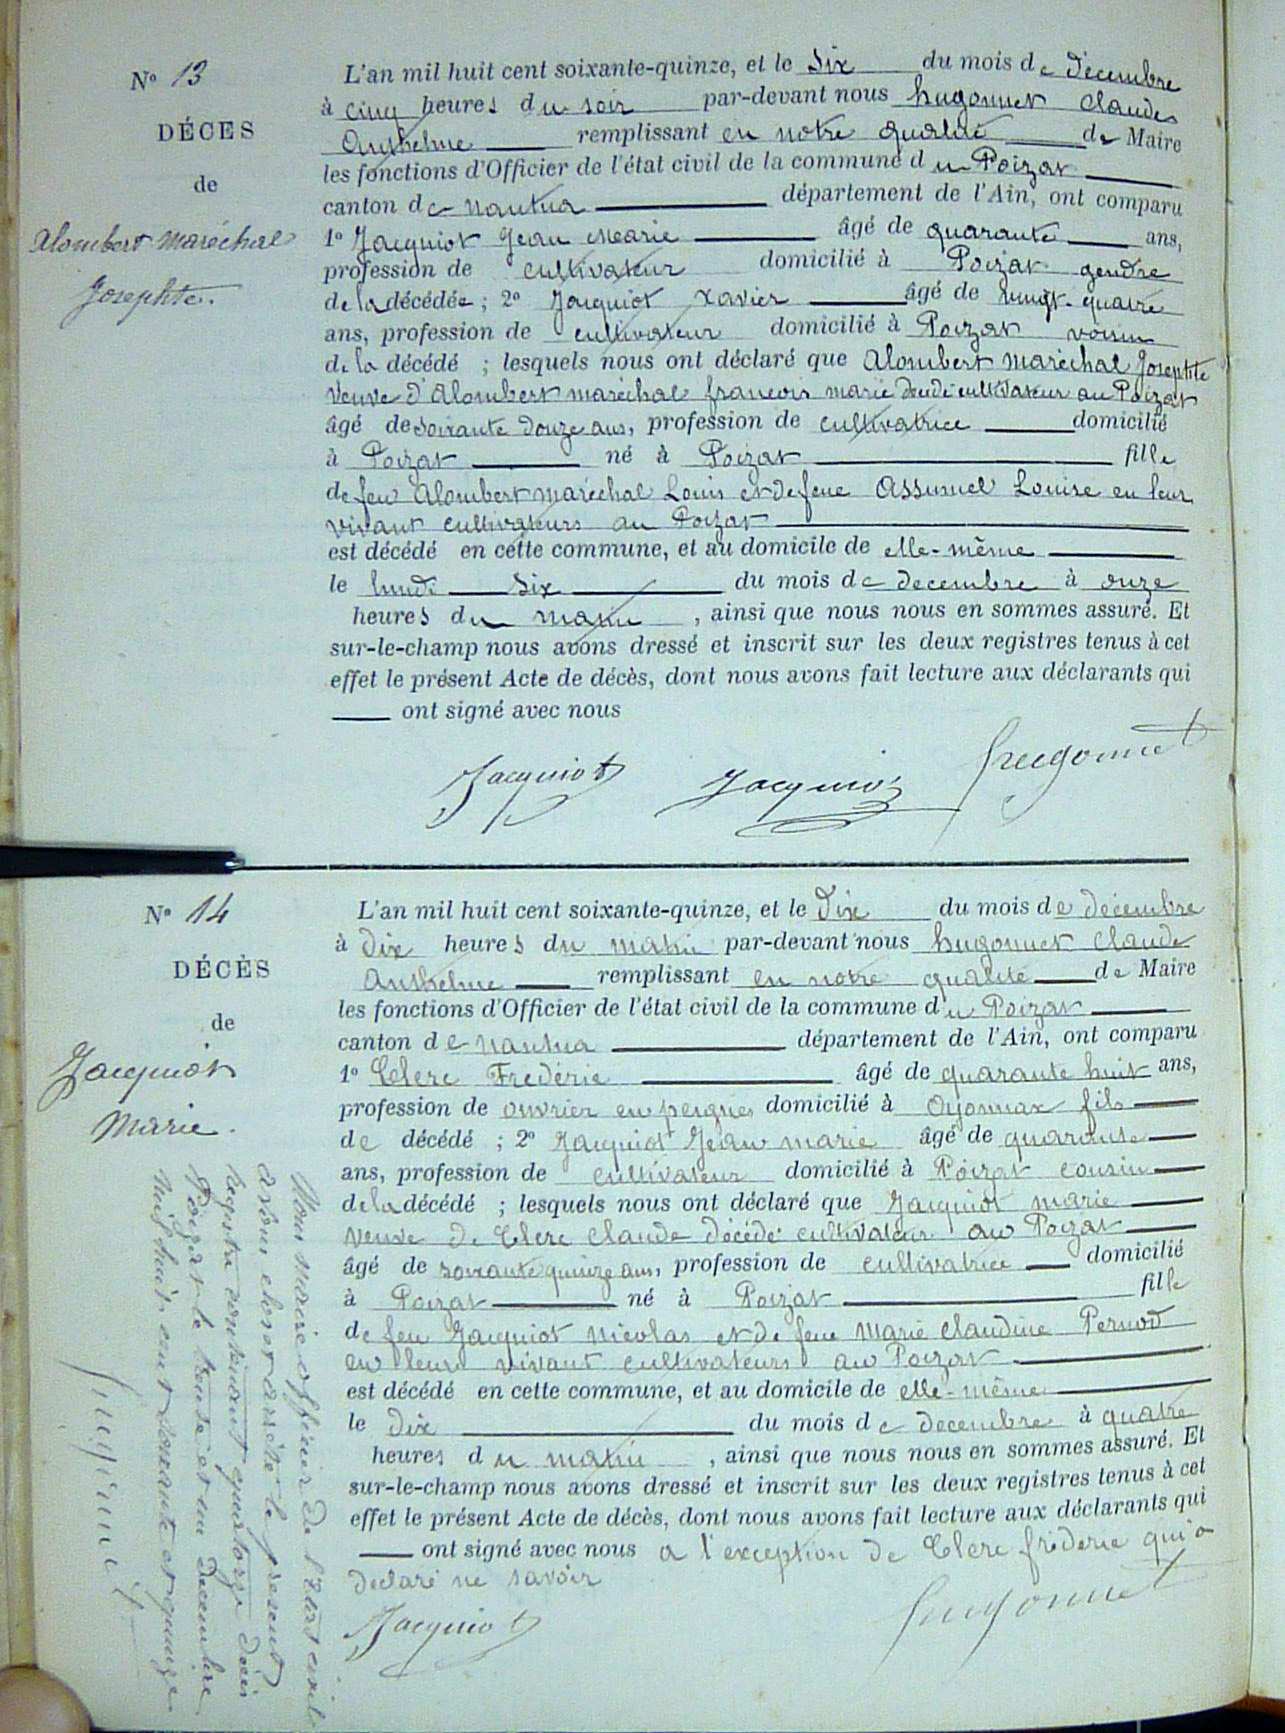 N° 13
DÉCES
de
Alombert Maréchal
Josephte.
L'an mil huit cent soixante-quinze, et le Six du mois de Décembre
à cinq heures du soir par-devant nous hugonnet Claude
Anthelme remplissant en notre qualité de Maire
les fonctions d'Officier de l'état civil de la commune du Poizat
canton de nantua département de l'Ain, ont comparu
1° Jacquiot Jean Marie âgé de quarante ans,
profession de cultivateur domicilié à Poizat gendre
de la décédée ; 2° Jacquiot xavier âgé de vingt-quatre
ans, profession de cultivateur domicilié à Poizat voisin
de la décédé ; lesquels nous ont déclaré que Alombert maréchal Josephte
veuve d'Alombert maréchal francois marie décédé cultivateur au Poizat
âgé de soixante douze ans, profession de cultivatrice domicilié
à Poizat né à Poizat fille
de feu Alombert maréchal Louis et de feue Assumel Louise en leur
vivant cultivateurs au Poizat
est décédé en cette commune, et au domicile de elle-même
le lundi Six du mois de decembre à onze
heures du matin , ainsi que nous nous en sommes assuré. Et
sur-le-champ nous avons dressé et inscrit sur les deux registres tenus à cet
effet le présent Acte de décès, dont nous avons fait lecture aux déclarants qui
ont signé avec nous
Jacquiot Jacquiot hugonnet
N° 14
DÉCÈS
de
Jacquiot
Marie.
L'an mil huit cent soixante-quinze, et le Dix du mois de décembre
à Dix heures du matin par-devant nous hugonnet Claude
Anthelme remplissant en notre qualité de Maire
les fonctions d'Officier de l'état civil de la commune du Poizat
canton de nantua département de l'Ain, ont comparu
1° Clerc Fredéric âgé de quarante huit ans,
profession de ouvrier en peignes domicilié à Oyonnax fils
de décédé ; 2° Jacquiot Jean marie âgé de quarante
ans, profession de cultivateur domicilié à Poizat cousin
de la décédé ; lesquels nous ont déclaré que Jacquiot marie
veuve de Clerc Claude décédé cultivateur au Poizat
âgé de soixante quinze ans, profession de cultivatrice domicilié
à Poizat né à Poizat fille
de feu Jacquiot nicolas et de feue Marie Claudine Pernod
en leur vivant cultivateurs au Poizat
est décédé en cette commune, et au domicile de elle-même
le dix du mois de decembre à quatre
heures du matin , ainsi que nous nous en sommes assuré. Et
sur-le-champ nous avons dressé et inscrit sur les deux registres tenus à cet
effet le présent Acte de décès, dont nous avons fait lecture aux déclarants qui
ont signé avec nous a l'exception de Clerc fréderic qui a
declaré ne savoir
Jacquiot hugonnet
Nous maire officier de l'état civil
avons clos et arrêté le présent
registre contenant quatorze décès
Poizat le trente et un Decembre
mil huit cent soixante et quinze
hugonnet